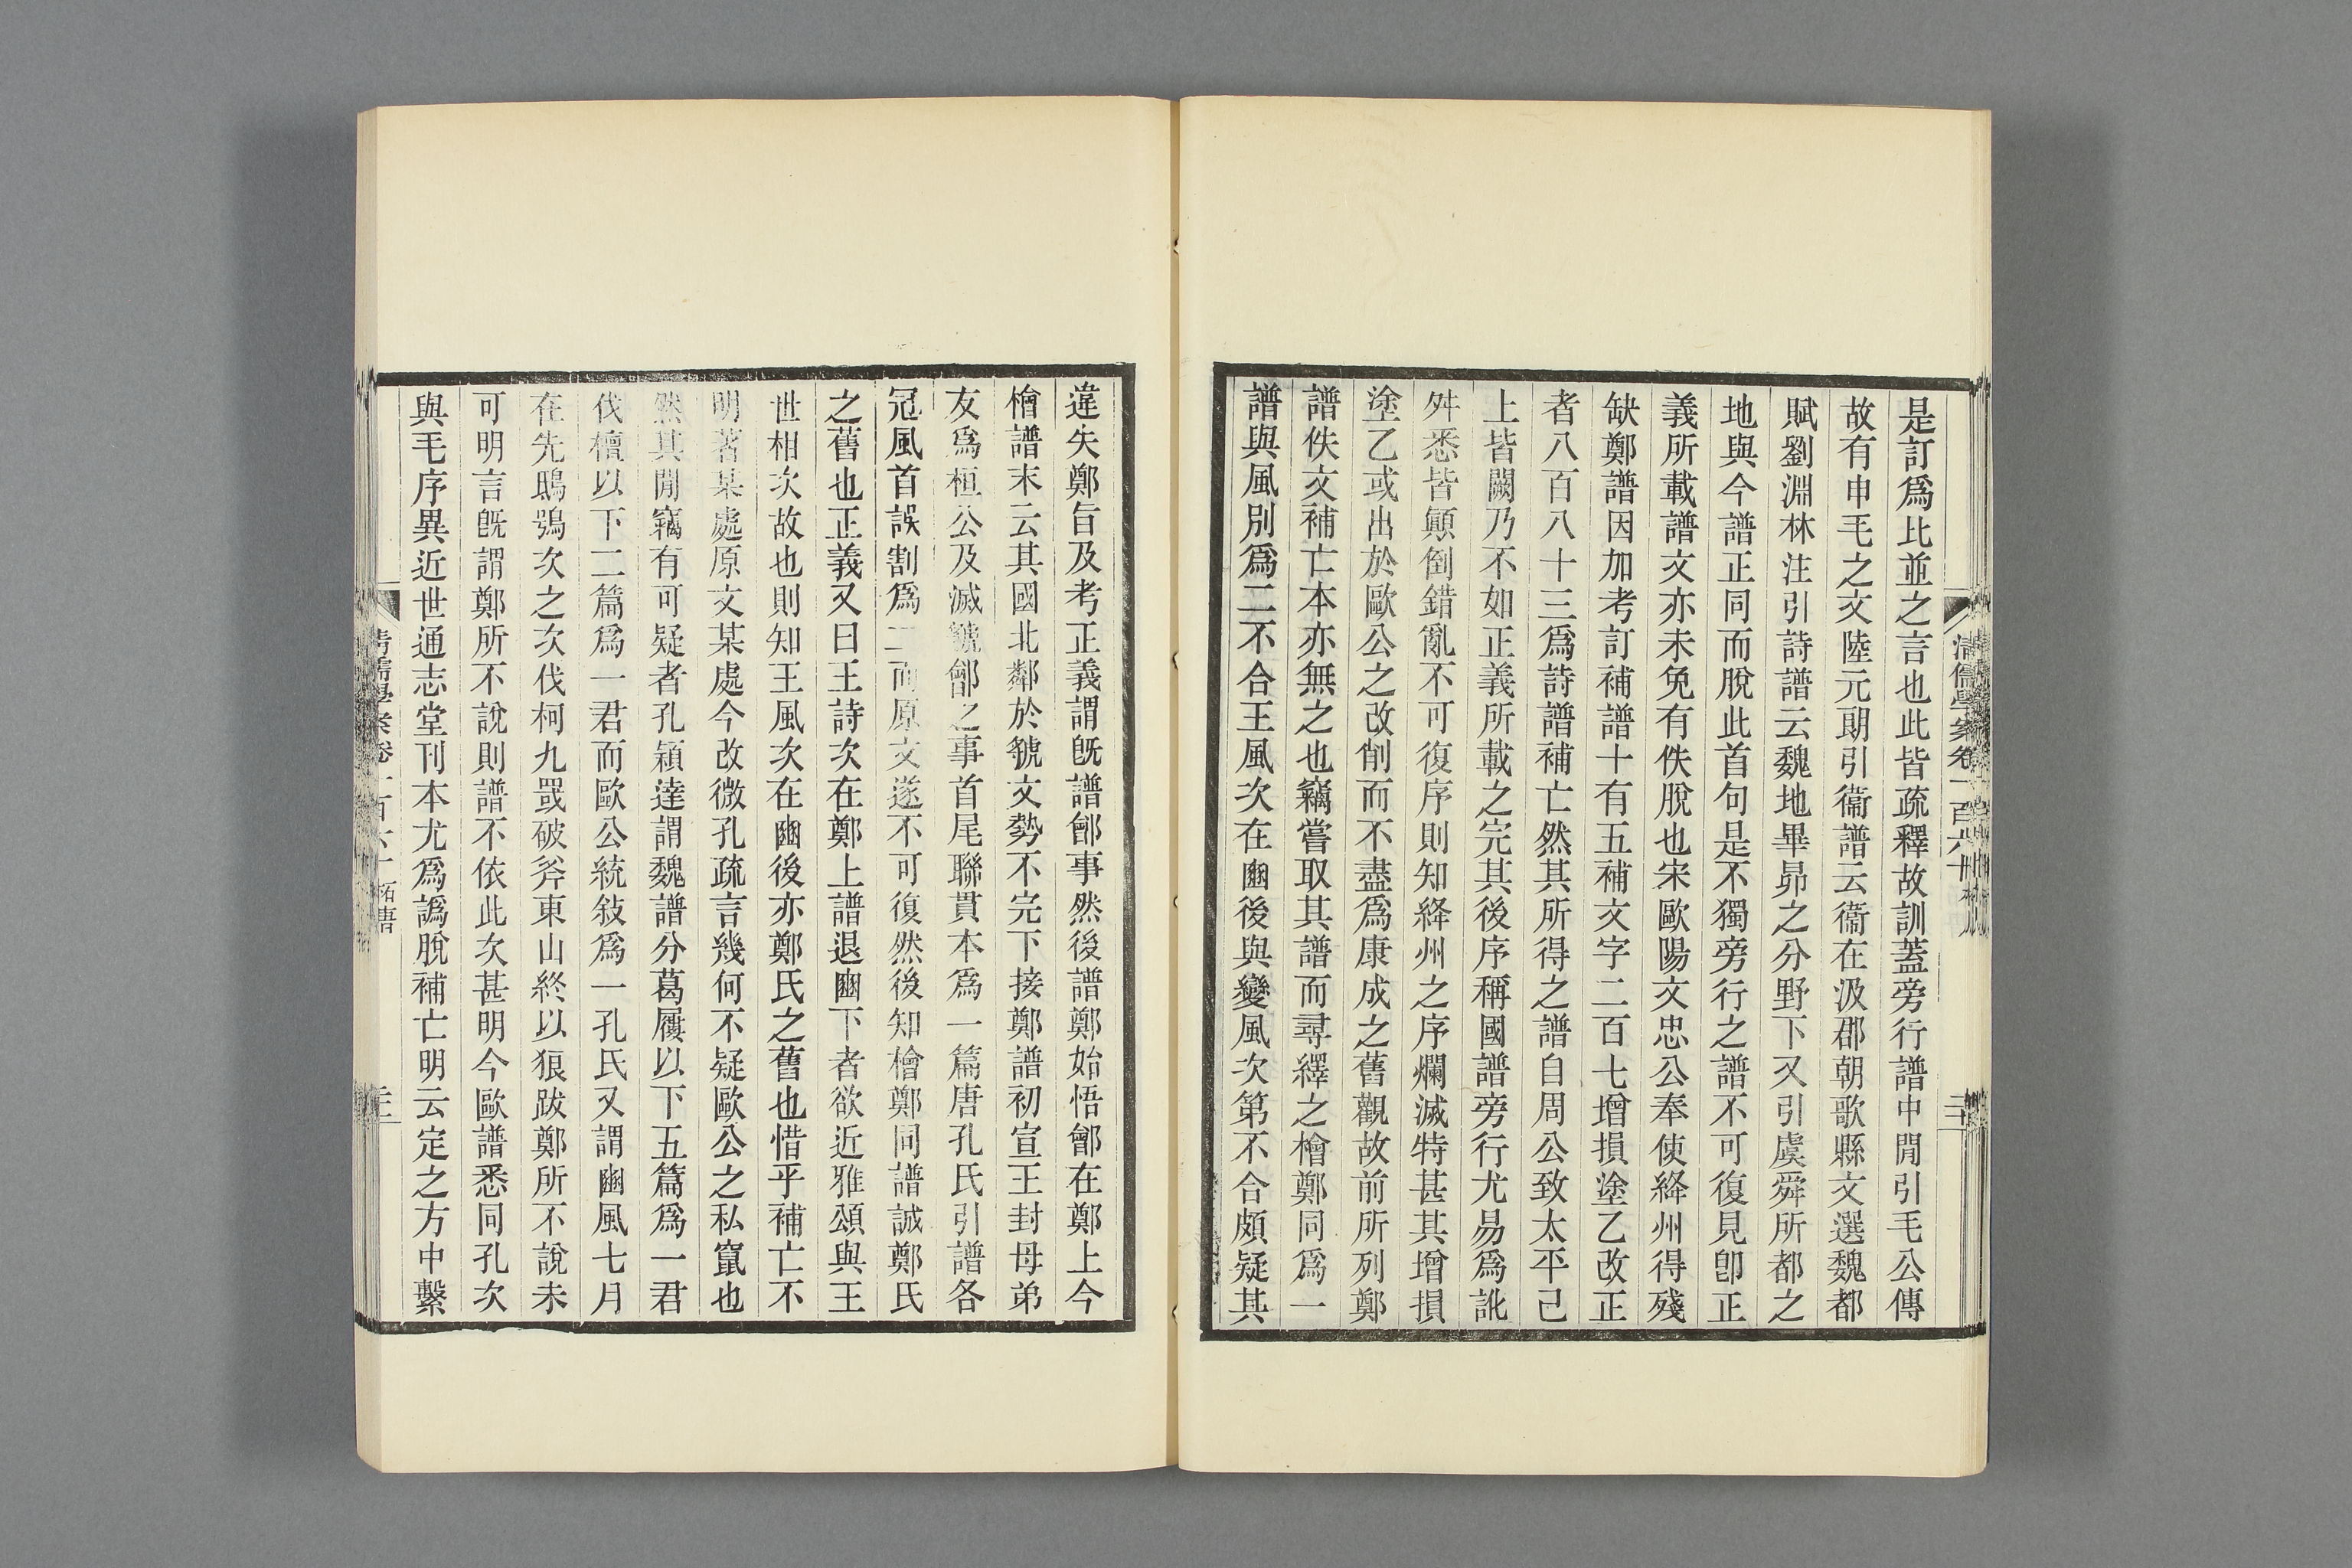 是訂爲比並之言也此皆疏釋故訓蓋旁行譜中閒引毛公傳
故有申毛之文陸元朗引衞譜云衞在汲郡朝歌縣文選魏都
賦劉淵林注引詩譜云魏地畢昴之分野下又引虞舜所都之
地與今譜正同而脫此首句是不獨旁行之譜不可復見卽正
義所載譜文亦未免有佚脫也宋歐陽文忠公奉使絳州得殘
缺鄭譜因加考訂補譜十有五補文字二百七增損塗乙改正
者八百八十三爲詩譜補亡然其所得之譜自周公致太平己
上皆闕乃不如正義所載之完其後序稱國譜旁行尤易爲訛
舛悉皆顚倒錯亂不可復序則知絳州之序爛滅特甚其增損
塗乙或出於歐公之改削而不盡爲康成之舊觀故前所列鄭
譜佚文補亡本亦無之也竊嘗取其譜而尋繹之檜鄭同爲一
譜與風別爲二不合王風次在豳後與變風次第不合頗疑其
清儒學案卷一百六十
違失鄭旨及考正義謂旣譜鄶事然後譜鄭始悟鄶在鄭上今
檜譜末云其國北鄰於虢文勢不完下接鄭譜初宣王封母弟
友爲桓公及滅虢鄶之事首尾聯貫本爲一篇唐孔氏引譜各
冠風首誤割爲二而原文遂不可復然後知檜鄭同譜誠鄭氏
之舊也正義又曰王詩次在鄭上譜退豳下者欲近雅頌與王
世相次故也則知王風次在豳後亦鄭氏之舊也惜乎補亡不
明著某處原文某處今改微孔疏言幾何不疑歐公之私竄也
然其閒竊有可疑者孔穎達謂魏譜分葛屨以下五篇爲一君
伐檀以下二篇爲一君而歐公統敍爲一孔氏又謂豳風七月
在先鴟鴞次之次伐柯九罭破斧東山終以狼跋鄭所不說未
可明言旣謂鄭所不說則譜不依此次甚明今歐譜悉同孔次
與毛序異近世通志堂刊本尤爲譌脫補亡明云定之方中繫
清儒學案卷一百六十 柘唐